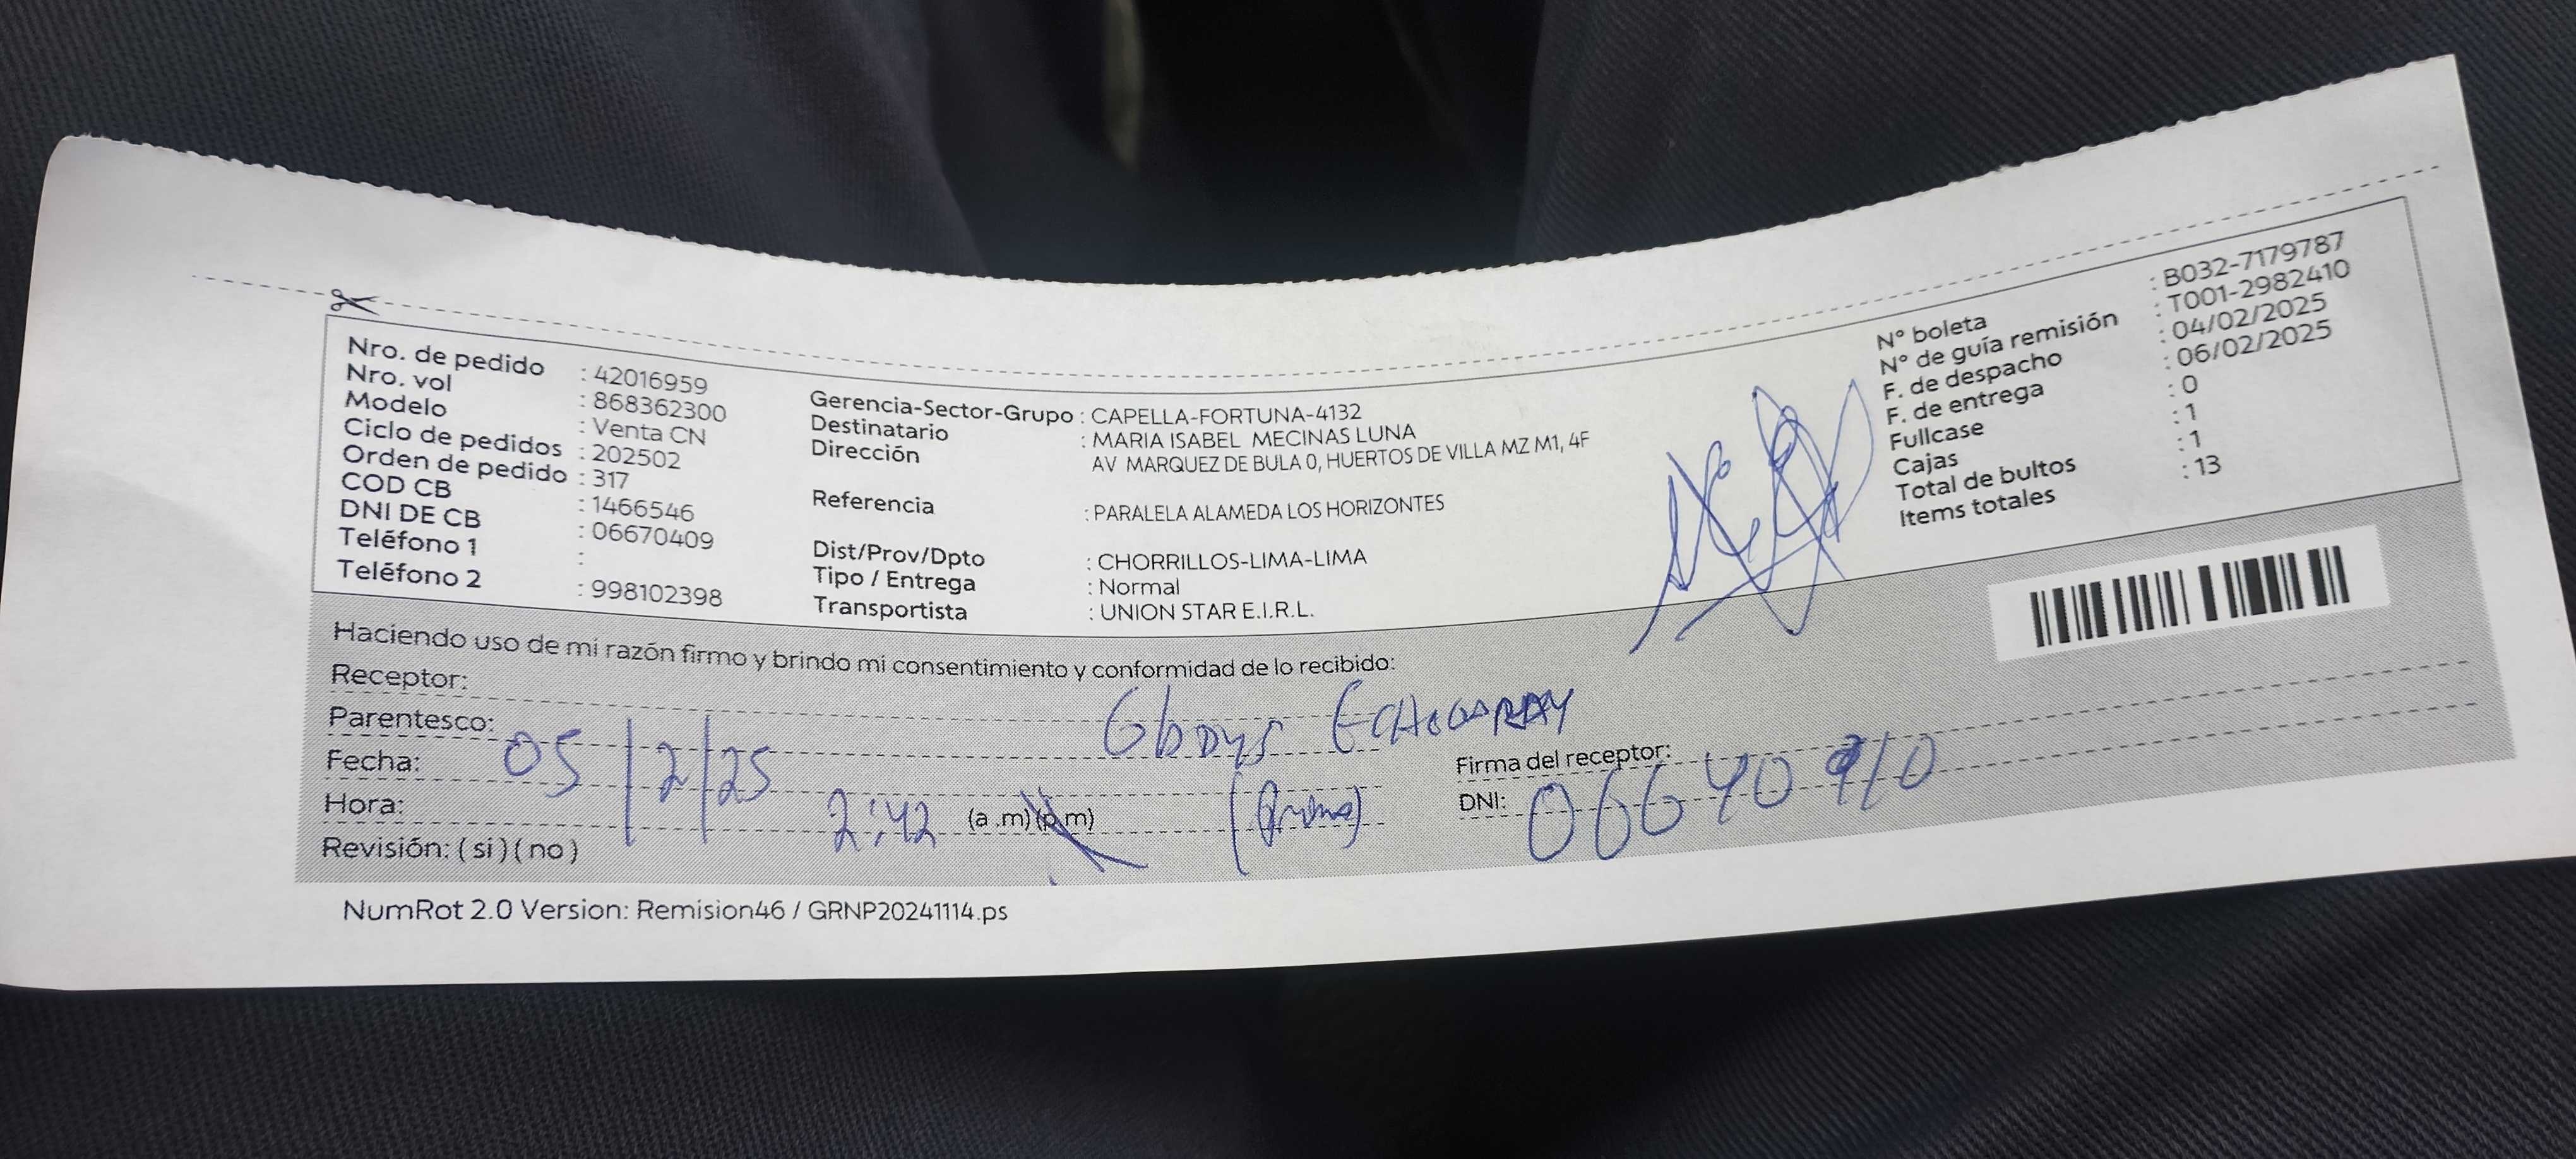 Nro. de pedido : 42016959
Nro. vol : 868362300
Modelo : Venta CN
Ciclo de pedidos : 202502
Orden de pedido : 317
COD CB : 1466546
DNI DE CB : 06670409
Teléfono 1 :
Teléfono 2 : 998102398
Gerencia-Sector-Grupo : CAPELLA-FORTUNA-4132
Destinatario : MARIA ISABEL MECINAS LUNA
Dirección AV MARQUEZ DE BULA 0, HUERTOS DE VILLA MZ M1, 4F
Referencia : PARALELA ALAMEDA LOS HORIZONTES
Dist/Prov/Dpto : CHORRILLOS-LIMA-LIMA
Tipo / Entrega : Normal
Transportista : UNION STAR E.I.R.L.
N° boleta : B032-7179787
N° de guía remisión : T001-2982410
F. de despacho : 04/02/2025
F. de entrega : 06/02/2025
Fullcase : 0
Cajas : 1
Total de bultos : 1
Items totales : 13
Haciendo uso de mi razón firmo y brindo mi consentimiento y conformidad de lo recibido:
Receptor:
Parentesco:
Fecha: 05/2/25
Hora: 2:42 (a.m)(p.m)
(Prima)
Revisión: ( si ) ( no )
Firma del receptor:
DNI:
NumRot 2.0 Version: Remision46 / GRNP20241114.ps